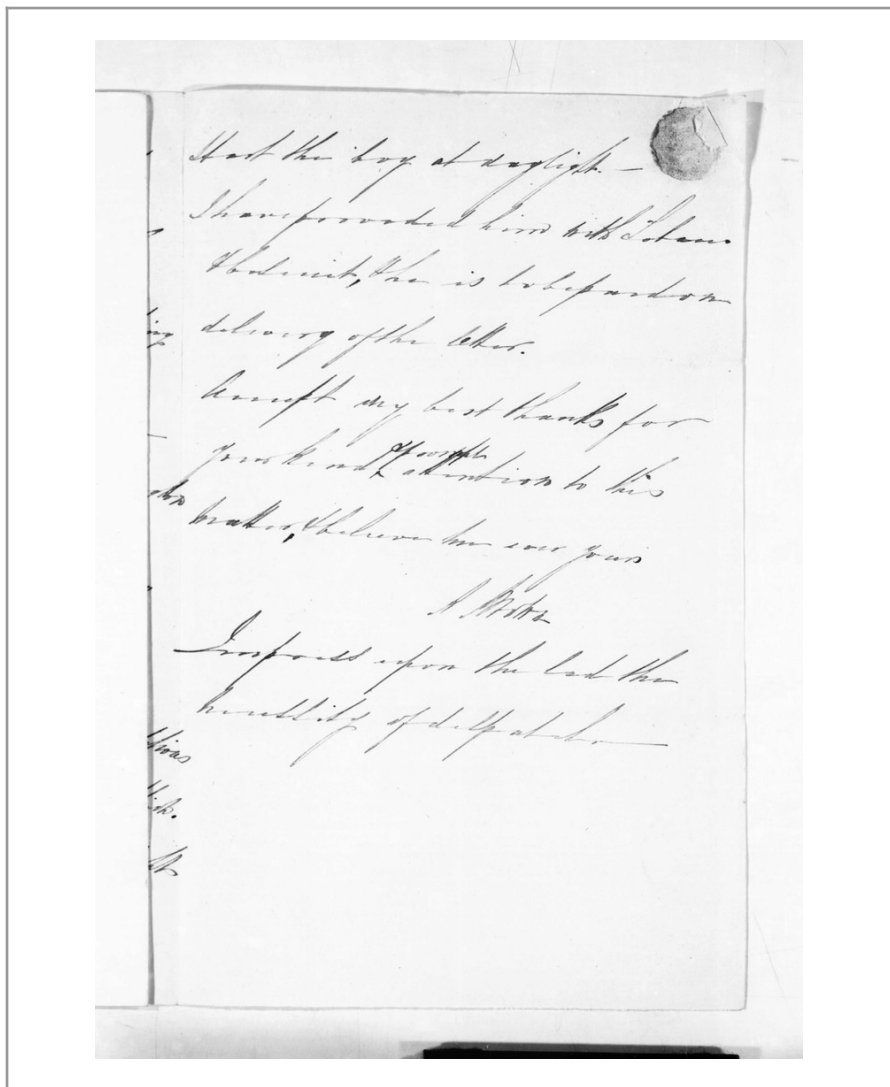 start the boy at daylight —
I have provided him with Tobacco
& biscuit, & he is to be paid on
delivery of the letter.
Accept my best thanks for
your kind & prompt attention to this
matter, & believe me ever yours
Impress upon the lad the
necessity of despatch —